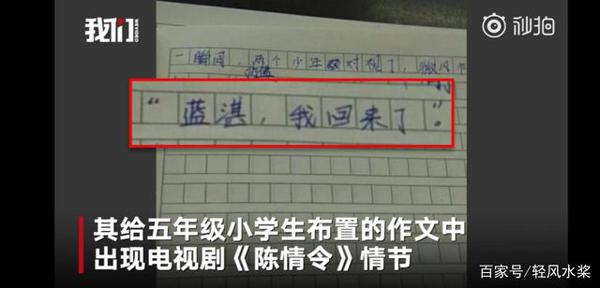 我们
秒拍
一瞬间，两个少年对视了，微风
“蓝湛，我回来了”。
其给五年级小学生布置的作文中
出现电视剧《陈情令》情节
百家号/轻风水桨